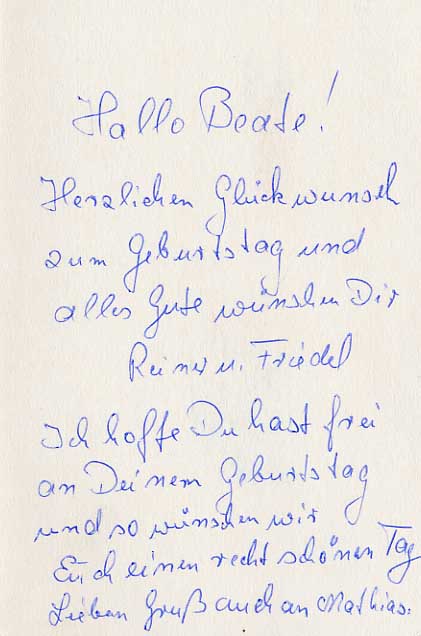 Hallo Beate!
Herzlichen Glückwunsch
zum Geburtstag und
alles Gute wünschen Dir
Reiner u. Friedel
Ich hoffe Du hast frei
an Deinem Geburtstag
und so wünschen wir
Euch einen recht schönen Tag
Lieben Gruß auch an Mathias.